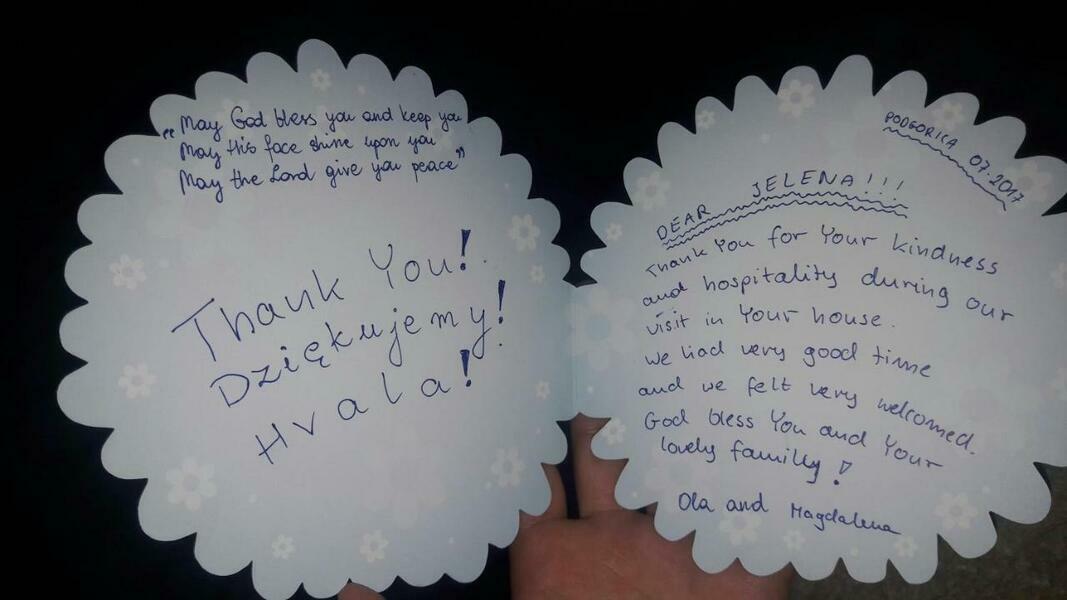 "May God bless you and keep you
May His face shine upon you
May the Lord give you peace"
Thank You!
Dziękujemy!
Hvala!
PODGORICA 07.2017
DEAR JELENA!!!
Thank You for Your kindness
and hospitality during our
visit in Your house.
We had very good time
and we felt very welcomed.
God bless You and Your
lovely familly!
Ola and Magdalena